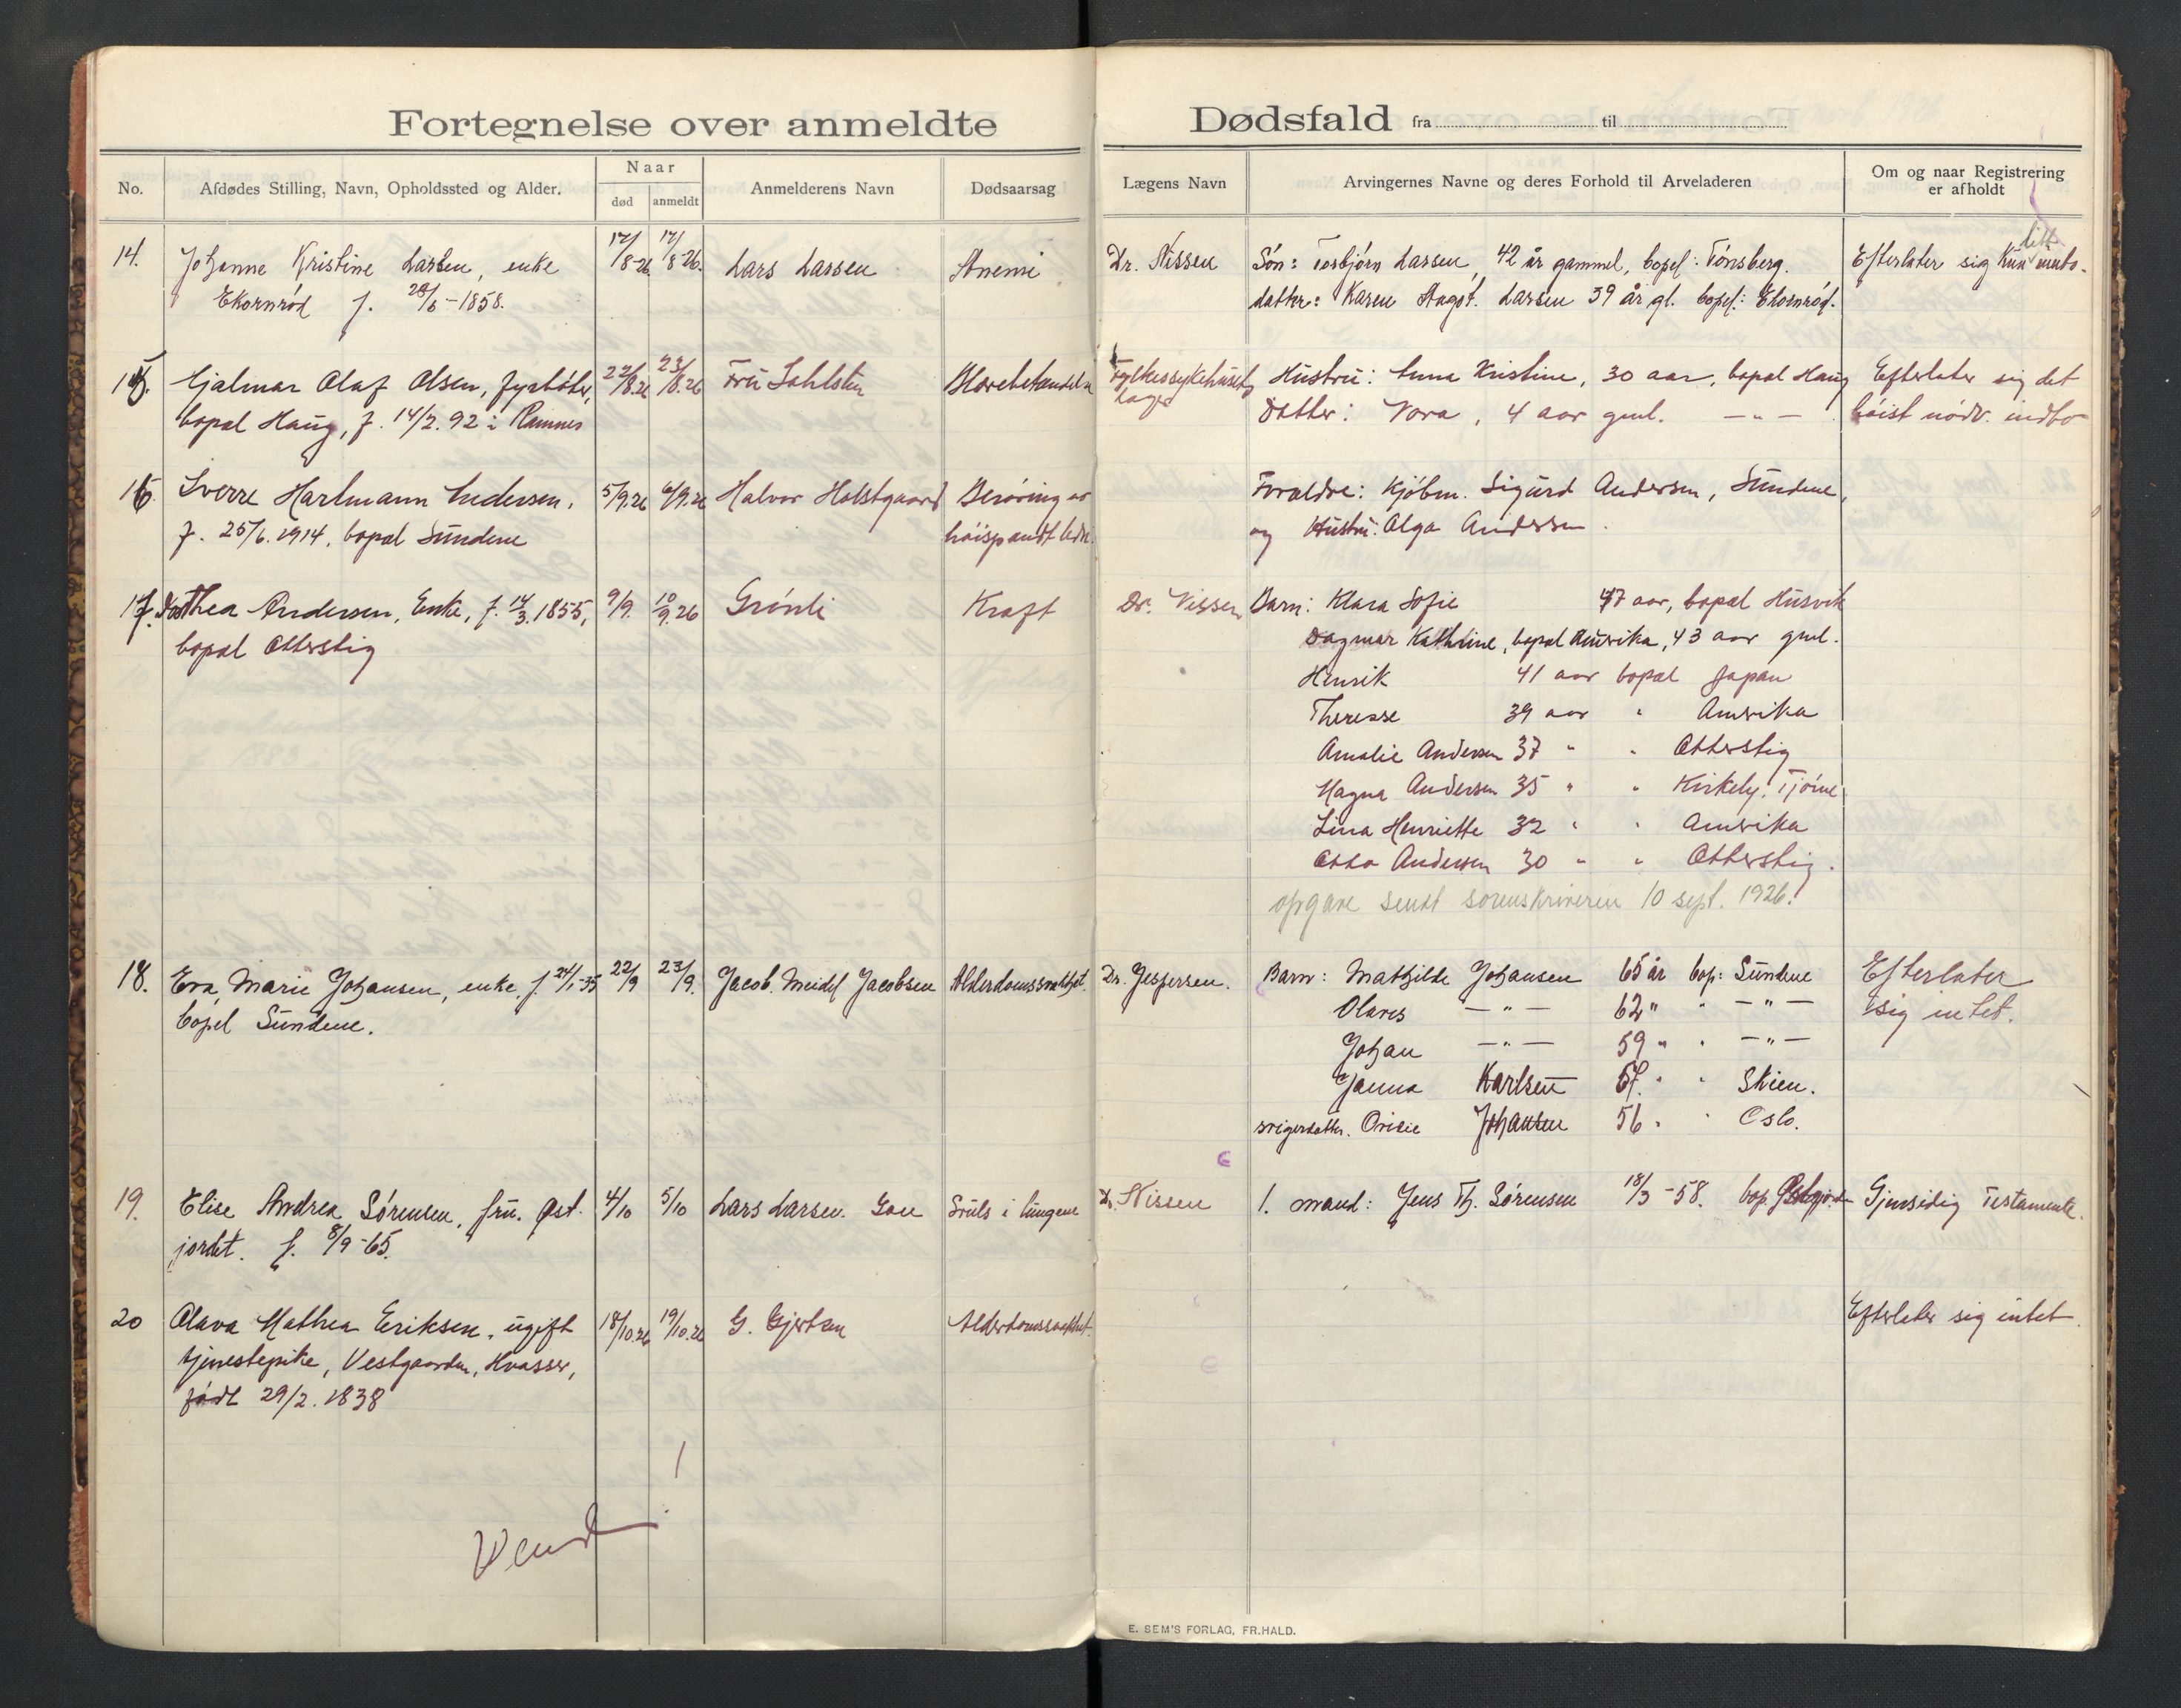 Fortegnelse over anmeldte Dødsfald fra til
No.
Afdødes Stilling, Navn, Opholdssted og Alder.
Naar
død
anmeldt
Anmelderens Navn
Dødsaarsag
Lægens Navn
Arvingernes Navne og deres Forhold til Arveladeren
Om og naar Registrering
er afholdt
14. Johanne Kristine Larsen, enke 17/8-26 17/8-26. Lars Larsen Anemi Dr. Nissen Søn: Torbjørn Larsen, 42 år gammel, bopel: Tønsberg. Efterlater sig kun litt
Ekornrød f. 28/6-1858. datter: Karen Aagot. Larsen 39 år gl. bopel: Ekornrød.
15. Hjalmar Olaf Olsen, fyrbøter, 22/8.26 23/8.26 Fru Dahlsten Fylkessykehuset Hustru: Anna Kristine, 30 aar, bopæl Haug Efterlater sig det
bopæl Haug, f. 14/2.92 i Ramnes Datter: Nora, 4 aar gml. — " — høist nødv. indbo
16. Sverre Hartmann Andersen, 5/9.26 6/9.26 Halvor Holstgaard Berøring av Foraldre: Kjøbm. Sigurd Andersen, Sundene,
f. 25/6.1914, bopæl Sundene høispændt ledn. og Hustru: Olga Andersen.
17. Dorthea Andersen, Enke, f. 14/3.1855, 9/9. 10/9.26 Grønli Kraft Dr. Nissen Barn: Klara Sofie 47 aar, bopæl Husvik
bopæl Otterstig Dagmar Kathrine, bopæl Amerika, 43 aar gml.
Henrik 41 aar bopæl Japan
Therese 39 aar " Amerika
Amalie Andersen 37 " " Otterstig
Magna Andersen 35 " " Kirkely, Tjøme
Lina Henriette 32 " " Amerika
Otto Andersen 30 " " Otterstig.
opgave sendt sorenskriveren 10 sept. 1926.
18. Eva Marie Johansen, enke, f. 24/1-35 22/9 23/9. Jacob Meidel Jacobsen Alderdomssvakhet. Dr. Jespersen. Barn: Mathilde Johansen 65 år bop: Sundene Efterlater
bopel Sundene. Olaves — " — 62 " " — " — sig intet.
Johan — " — 59 " " — " —
Janna Karlsen 57. " " Skien.
svigerdatter. Johansen 56 " " Oslo.
19. Elise Andrea Sørensen, fru. Øst- 4/10 5/10 Lars Larsen. Goen Svuls i lungene Dr. Nissen 1. mand: Jens Th. Sørensen 18/3-58. bop. Gjensidig Testamente.
jordet. f. 8/9-65.
20 Olava Mathea Eriksen, ugift 18/10.26 19/10.26 G. Gjertsen Alderdomssvakhet. Efterlater sig intet.
tjenestepike, Vestgaarden, Hvasser,
født 29/2.1838
Vend!
E. SEM'S FORLAG, FR.HALD.